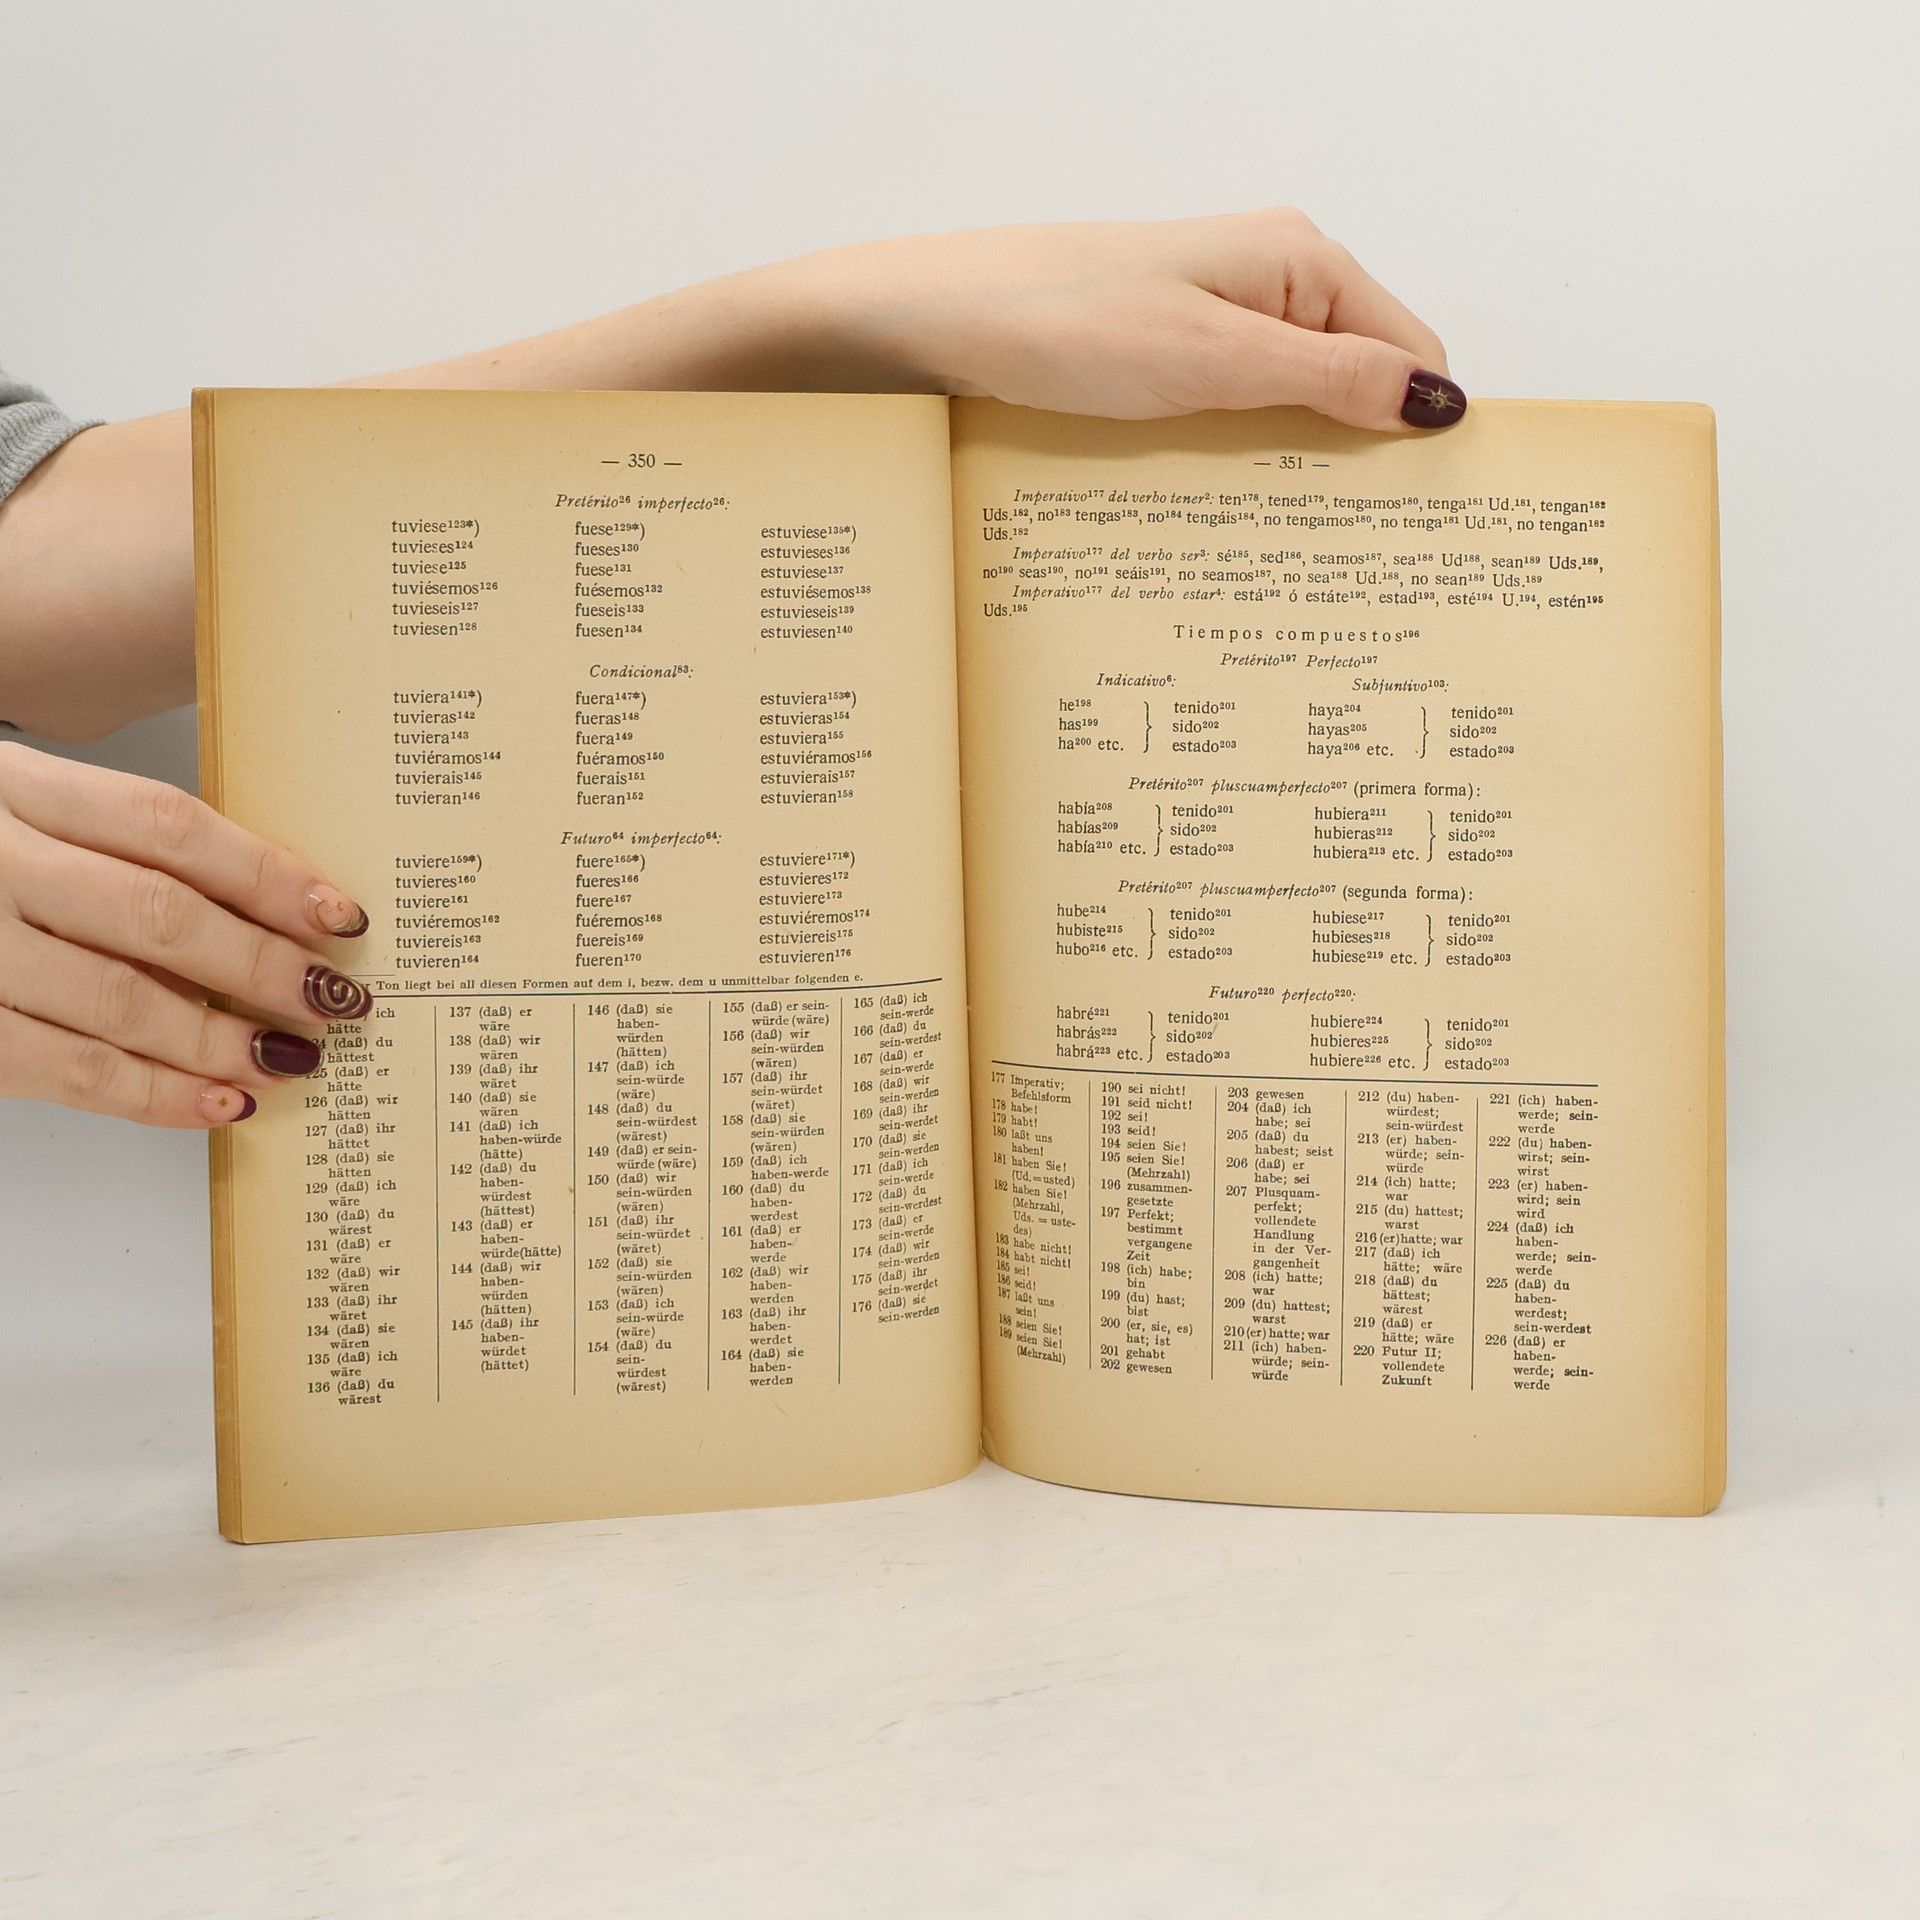 — 350 —
Pretérito²⁶ imperfecto²⁶:
tuviese¹²³*) fuese¹²⁹*) estuviese¹³⁵*)
tuvieses¹²⁴ fueses¹³⁰ estuvieses¹³⁶
tuviese¹²⁵ fuese¹³¹ estuviese¹³⁷
tuviésemos¹²⁶ fuésemos¹³² estuviésemos¹³⁸
tuvieseis¹²⁷ fueseis¹³³ estuvieseis¹³⁹
tuviesen¹²⁸ fuesen¹³⁴ estuviesen¹⁴⁰
Condicional⁸³:
tuviera¹⁴¹*) fuera¹⁴⁷*) estuviera¹⁵³*)
tuvieras¹⁴² fueras¹⁴⁸ estuvieras¹⁵⁴
tuviera¹⁴³ fuera¹⁴⁹ estuviera¹⁵⁵
tuviéramos¹⁴⁴ fuéramos¹⁵⁰ estuviéramos¹⁵⁶
tuvierais¹⁴⁵ fuerais¹⁵¹ estuvierais¹⁵⁷
tuvieran¹⁴⁶ fueran¹⁵² estuvieran¹⁵⁸
Futuro⁶⁴ imperfecto⁶⁴:
tuviere¹⁵⁹*) fuere¹⁶⁵*) estuviere¹⁷¹*)
tuvieres¹⁶⁰ fueres¹⁶⁶ estuvieres¹⁷²
tuviere¹⁶¹ fuere¹⁶⁷ estuviere¹⁷³
tuviéremos¹⁶² fuéremos¹⁶⁸ estuviéremos¹⁷⁴
tuviereis¹⁶³ fuereis¹⁶⁹ estuviereis¹⁷⁵
tuvieren¹⁶⁴ fueren¹⁷⁰ estuvieren¹⁷⁶
Ton liegt bei all diesen Formen auf dem i, bezw. dem u unmittelbar folgenden e.
ich
hätte
(daß) du
hättest
125 (daß) er
hätte
126 (daß) wir
hätten
127 (daß) ihr
hättet
128 (daß) sie
hätten
129 (daß) ich
wäre
130 (daß) du
wärest
131 (daß) er
wäre
132 (daß) wir
wären
133 (daß) ihr
wäret
134 (daß) sie
wären
135 (daß) ich
wäre
136 (daß) du
wärest
137 (daß) er
wäre
138 (daß) wir
wären
139 (daß) ihr
wäret
140 (daß) sie
wären
141 (daß) ich
haben-würde
(hätte)
142 (daß) du
haben-
würdest
(hättest)
143 (daß) er
haben-
würde(hätte)
144 (daß) wir
haben-
würden
(hätten)
145 (daß) ihr
haben-
würdet
(hättet)
146 (daß) sie
haben-
würden
(hätten)
147 (daß) ich
sein-würde
(wäre)
148 (daß) du
sein-würdest
(wärest)
149 (daß) er sein-
würde (wäre)
150 (daß) wir
sein-würden
(wären)
151 (daß) ihr
sein-würdet
(wäret)
152 (daß) sie
sein-würden
(wären)
153 (daß) ich
sein-würde
(wäre)
154 (daß) du
sein-
würdest
(wärest)
155 (daß) er sein-
würde (wäre)
156 (daß) wir
sein-würden
(wären)
157 (daß) ihr
sein-würdet
(wäret)
158 (daß) sie
sein-würden
(wären)
159 (daß) ich
haben-werde
160 (daß) du
haben-
werdest
161 (daß) er
haben-
werde
162 (daß) wir
haben-
werden
163 (daß) ihr
haben-
werdet
164 (daß) sie
haben-
werden
165 (daß) ich
sein-werde
166 (daß) du
sein-werdest
167 (daß) er
sein-werde
168 (daß) wir
sein-werden
169 (daß) ihr
sein-werdet
170 (daß) sie
sein-werden
171 (daß) ich
sein-werde
172 (daß) du
sein-werdest
173 (daß) er
sein-werde
174 (daß) wir
sein-werden
175 (daß) ihr
sein-werdet
176 (daß) sie
sein-werden
— 351 —
Imperativo¹⁷⁷ del verbo tener²: ten¹⁷⁸, tened¹⁷⁹, tengamos¹⁸⁰, tenga¹⁸¹ Ud.¹⁸¹, tengan¹⁸²
Uds.¹⁸², no¹⁸³ tengas¹⁸³, no¹⁸⁴ tengáis¹⁸⁴, no tengamos¹⁸⁰, no tenga¹⁸¹ Ud.¹⁸¹, no tengan¹⁸²
Uds.¹⁸²
Imperativo¹⁷⁷ del verbo ser³: sé¹⁸⁵, sed¹⁸⁶, seamos¹⁸⁷, sea¹⁸⁸ Ud¹⁸⁸, sean¹⁸⁹ Uds.¹⁸⁹,
no¹⁹⁰ seas¹⁹⁰, no¹⁹¹ seáis¹⁹¹, no seamos¹⁸⁷, no sea¹⁸⁸ Ud.¹⁸⁸, no sean¹⁸⁹ Uds.¹⁸⁹
Imperativo¹⁷⁷ del verbo estar⁴: está¹⁹² ó estáte¹⁹², estad¹⁹³, esté¹⁹⁴ U.¹⁹⁴, estén¹⁹⁵
Uds.¹⁹⁵
Tiempos compuestos¹⁹⁶
Pretérito¹⁹⁷ Perfecto¹⁹⁷
Indicativo⁶: Subjuntivo¹⁰³:
he¹⁹⁸ tenido²⁰¹ haya²⁰⁴ tenido²⁰¹
has¹⁹⁹ } sido²⁰² hayas²⁰⁵ } sido²⁰²
ha²⁰⁰ etc. estado²⁰³ haya²⁰⁶ etc. estado²⁰³
Pretérito²⁰⁷ pluscuamperfecto²⁰⁷ (primera forma):
había²⁰⁸ tenido²⁰¹ hubiera²¹¹ tenido²⁰¹
habías²⁰⁹ } sido²⁰² hubieras²¹² } sido²⁰²
había²¹⁰ etc. estado²⁰³ hubiera²¹³ etc. estado²⁰³
Pretérito²⁰⁷ pluscuamperfecto²⁰⁷ (segunda forma):
hube²¹⁴ tenido²⁰¹ hubiese²¹⁷ tenido²⁰¹
hubiste²¹⁵ } sido²⁰² hubieses²¹⁸ } sido²⁰²
hubo²¹⁶ etc. estado²⁰³ hubiese²¹⁹ etc. estado²⁰³
Futuro²²⁰ perfecto²²⁰:
habré²²¹ tenido²⁰¹ hubiere²²⁴ tenido²⁰¹
habrás²²² } sido²⁰² hubieres²²⁵ } sido²⁰²
habrá²²³ etc. estado²⁰³ hubiere²²⁶ etc. estado²⁰³
177 Imperativ;
Befehlsform
178 habe!
179 habt!
180 laßt uns
haben!
181 haben Sie!
(Ud.=usted)
182 haben Sie!
(Mehrzahl,
Uds. = uste-
des)
183 habe nicht!
184 habt nicht!
185 sei!
186 seid!
187 laßt uns
sein!
188 seien Sie!
189 seien Sie!
(Mehrzahl)
190 sei nicht!
191 seid nicht!
192 sei!
193 seid!
194 seien Sie!
195 seien Sie!
(Mehrzahl)
196 zusammen-
gesetzte
197 Perfekt;
bestimmt
vergangene
Zeit
198 (ich) habe;
bin
199 (du) hast;
bist
200 (er, sie, es)
hat; ist
201 gehabt
202 gewesen
203 gewesen
204 (daß) ich
habe; sei
205 (daß) du
habest; seist
206 (daß) er
habe; sei
207 Plusquam-
perfekt;
vollendete
Handlung
in der Ver-
gangenheit
208 (ich) hatte;
war
209 (du) hattest;
warst
210 (er) hatte; war
211 (ich) haben-
würde; sein-
würde
212 (du) haben-
würdest;
sein-würdest
213 (er) haben-
würde; sein-
würde
214 (ich) hatte;
war
215 (du) hattest;
warst
216 (er)hatte; war
217 (daß) ich
hätte; wäre
218 (daß) du
hättest;
wärest
219 (daß) er
hätte; wäre
220 Futur II;
vollendete
Zukunft
221 (ich) haben-
werde; sein-
werde
222 (du) haben-
wirst; sein-
wirst
223 (er) haben-
wird; sein
wird
224 (daß) ich
haben-
werde; sein-
werde
225 (daß) du
haben-
werdest;
sein-werdest
226 (daß) er
haben-
werde; sein-
werde